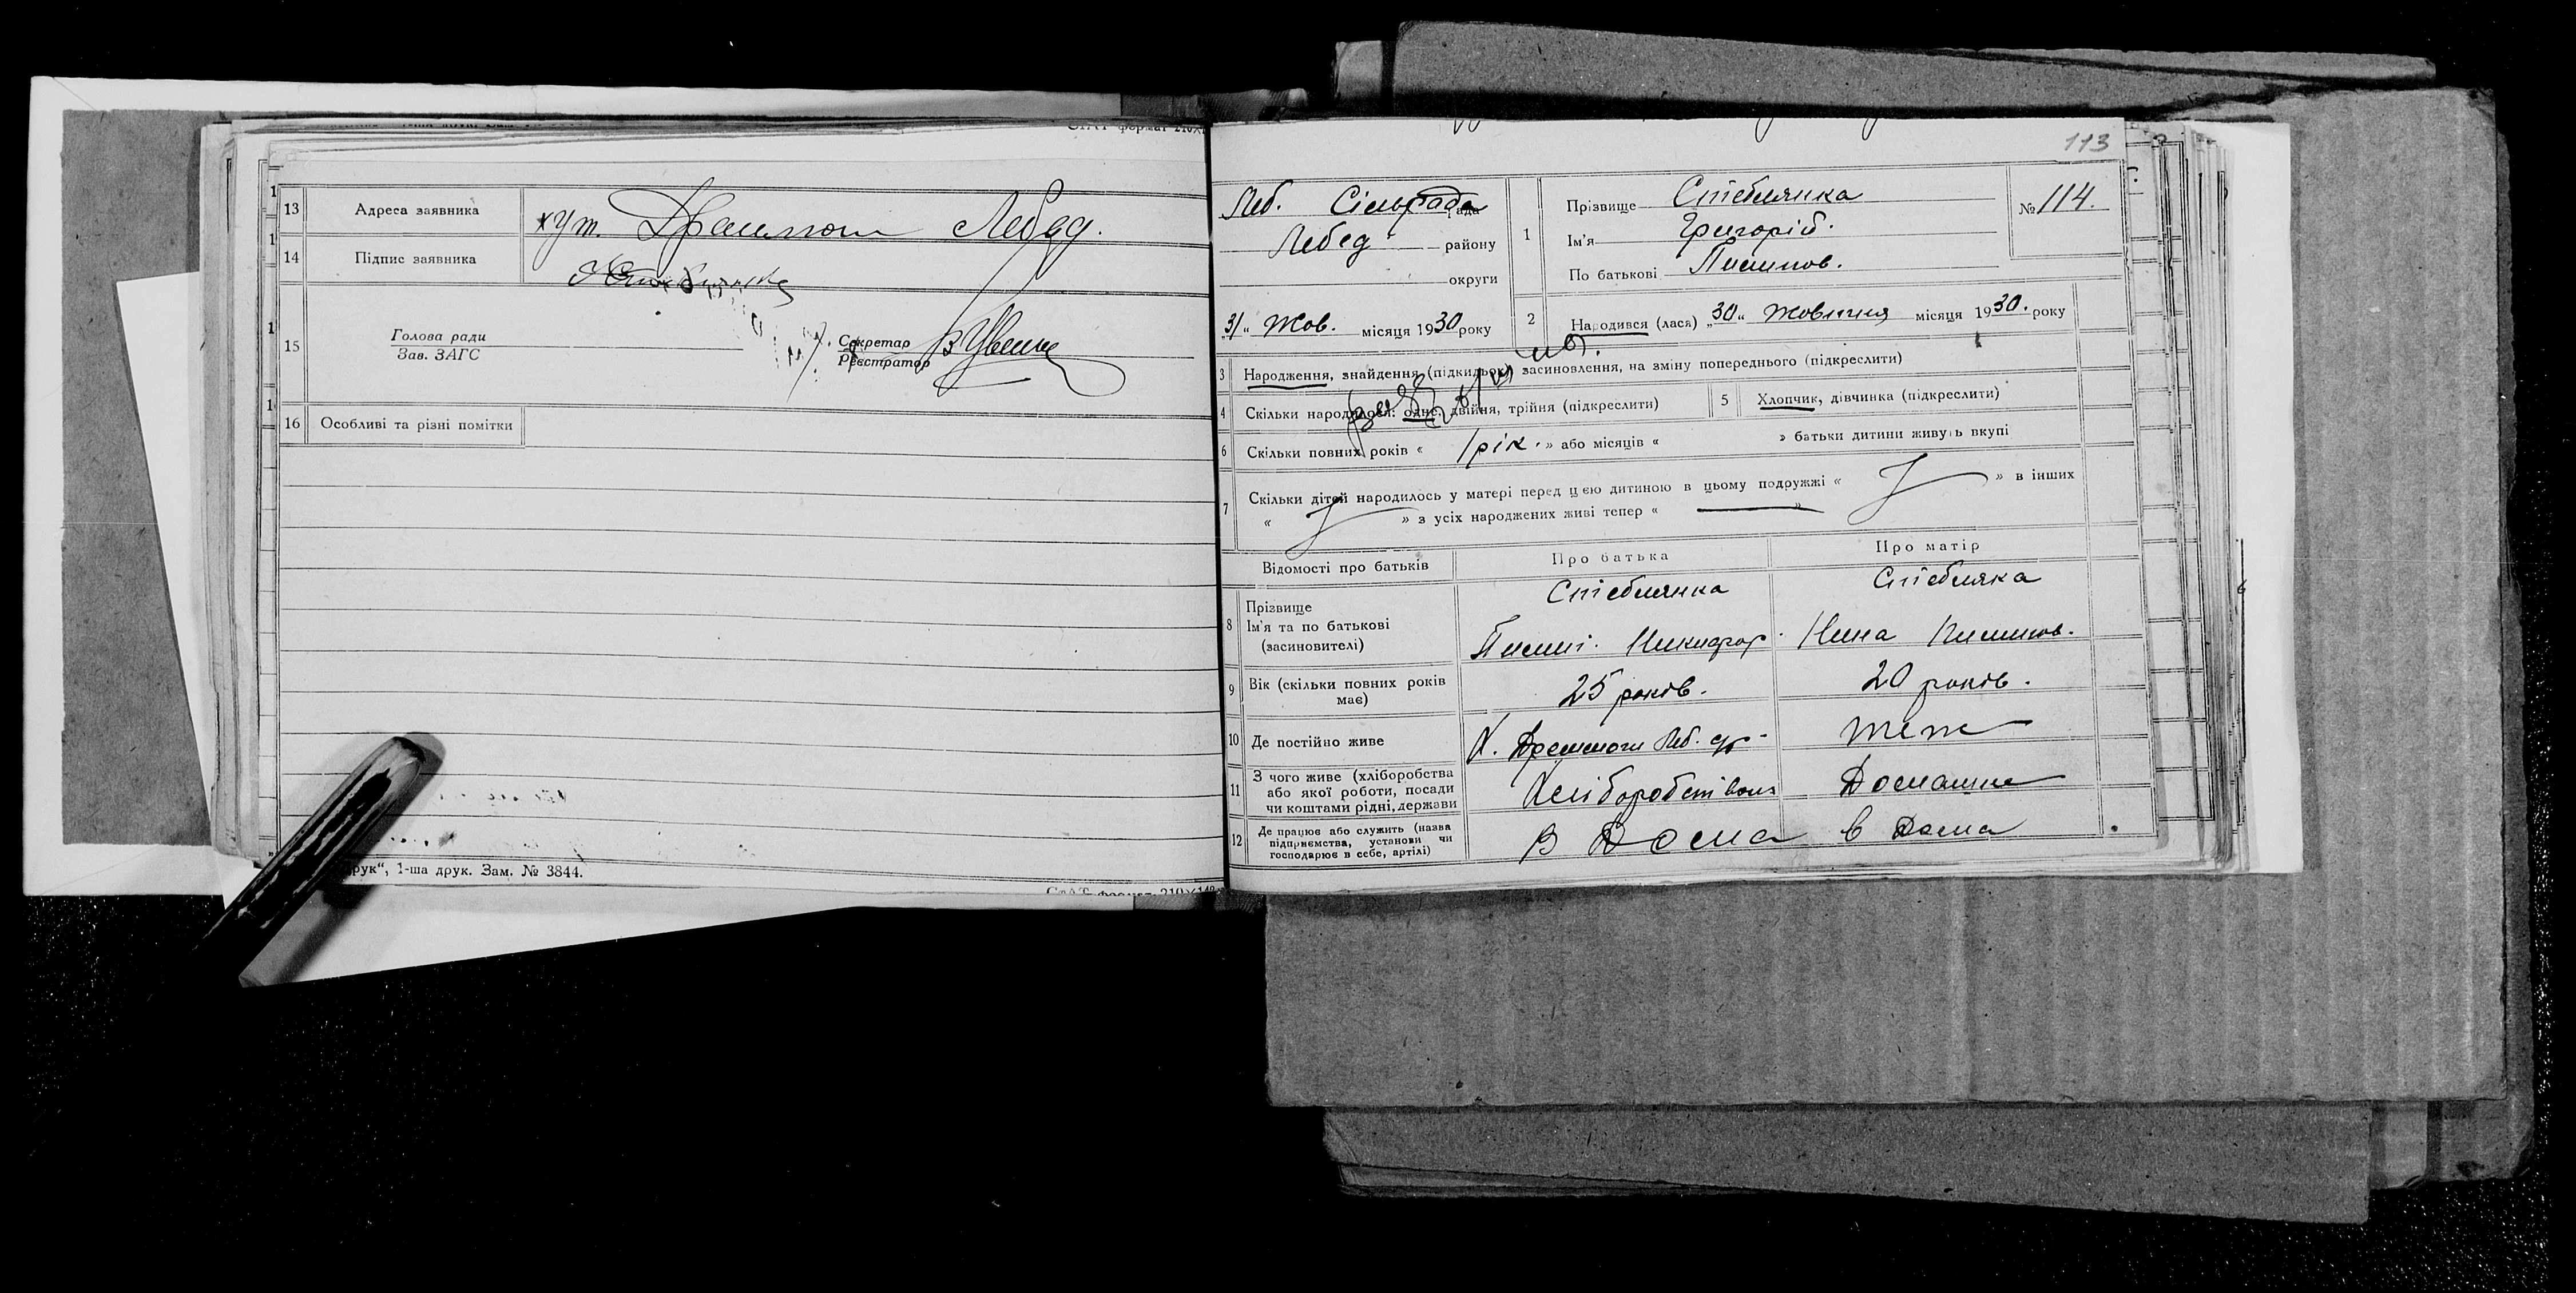 СтАТ формат 210×1
13 Адреса заявника хут. Лебед.
14 Підпис заявника
15 Голова ради
Зав. ЗАГС
Секретар
Реєстратор
16 Особливі та різні помітки
друк“, 1-ша друк. Зам. № 3844.
СтАТ формат 210×148
113
Леб. Сільрада рада
Лебед району
округи
31 „ Жов. місяця 1930 року
1 Прізвище Стеблянка
Ім'я Григорій.
По батькові Пилипов.
№ 114.
2 Народився (лася) „30„ Жовтня місяця 1930. року
3 Народження, знайдення (підкидьок) засиновлення, на зміну попереднього (підкреслити)
4 Скільки народилося: одне, двійня, трійня (підкреслити)
5 Хлопчик, дівчинка (підкреслити)
6 Скільки повних років « 1 рік. » або місяців « » батьки дитини живуть вкупі
7 Скільки дітей народилось у матері перед цією дитиною в цьому подружжі « » в інших
« » з усіх народжених живі тепер « — »
Відомості про батьків Про батька Про матір
8 Прізвище Стеблянка Стебляка
Ім'я та по батькові
(засиновителі) Пилип. Никифор. Нина Пилипов.
9 Вік (скільки повних років
має) 25 років. 20 років.
10 Де постійно живе Х. Леб. теж
11 З чого живе (хліборобства
або якої роботи, посади
чи коштами рідні, держави Хліборобством Домашнє
12 Де працює або служить (назва
підприємства, установи чи
господарює в себе, артілі) В Дома в Дома